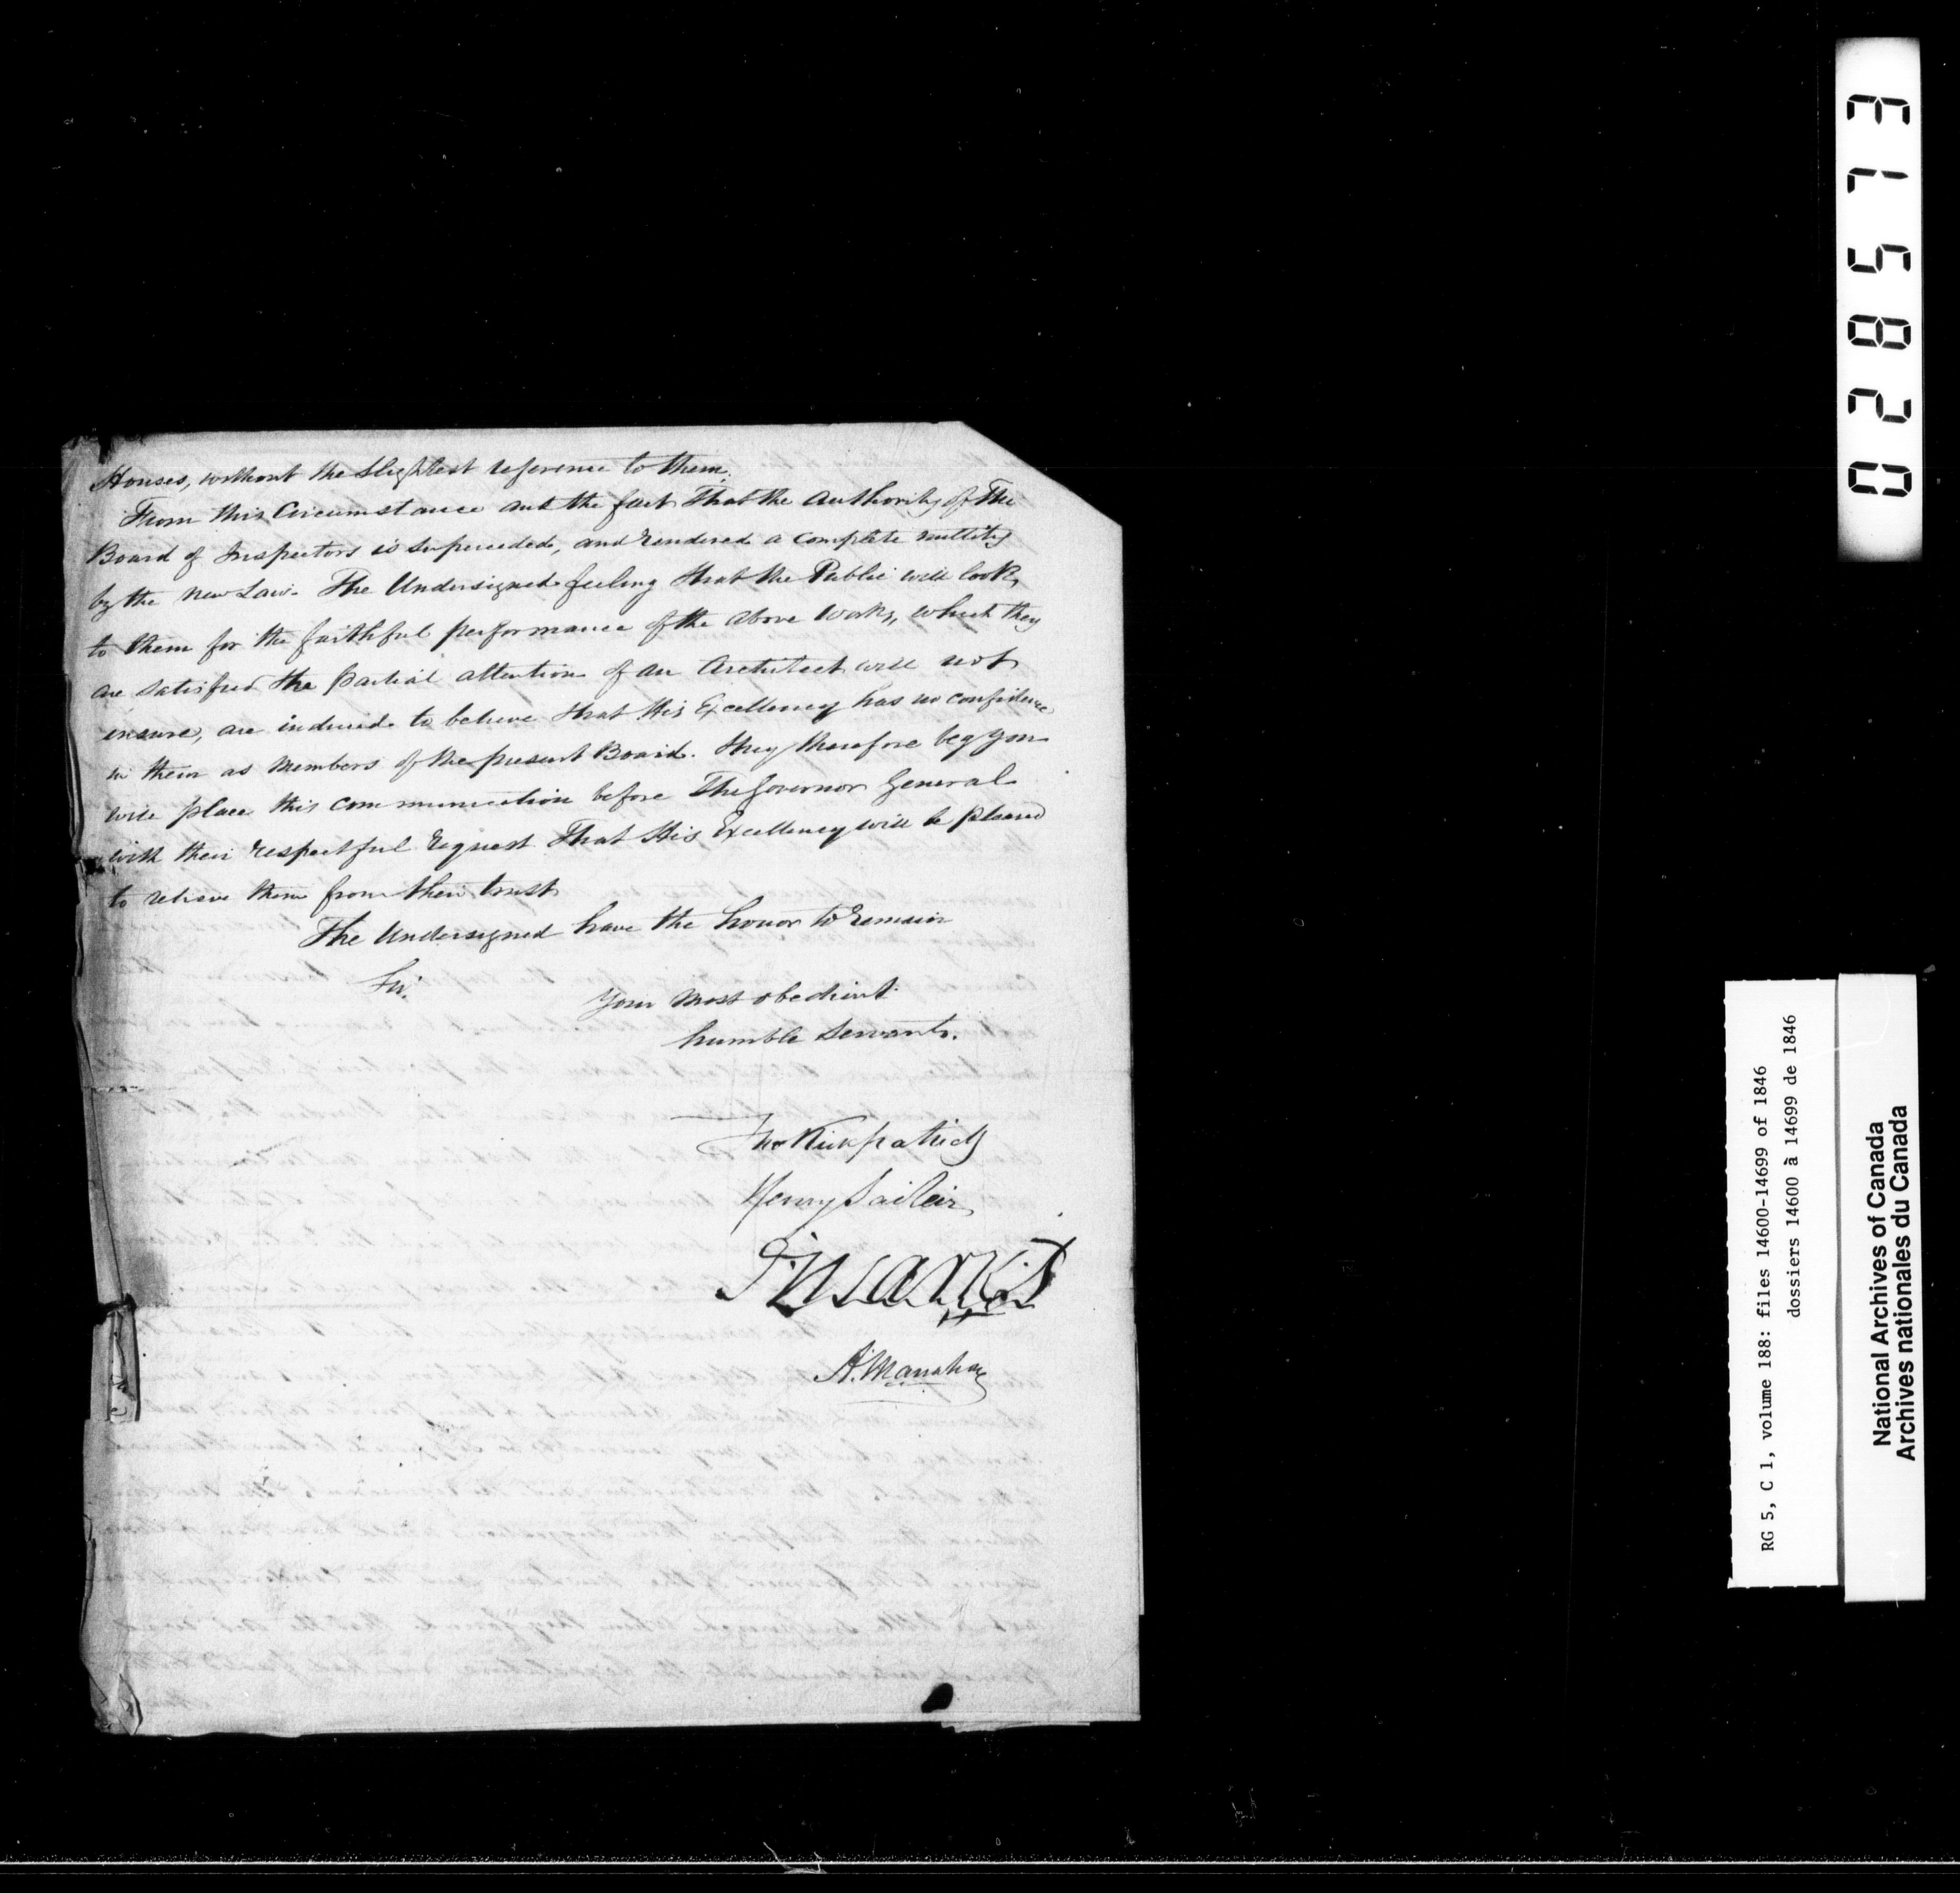 Houses, without the slightest reference to them.
From this Circumstance and the fact That the Authority of The
Board of Inspectors is superceded, and rendered a complete nullity
by the new Law. The Undersigned feeling that the Public will look
to them for the faithful performance of the above Works, which they
are satisfied the partial attention of an Architect will not
ensure, are induced to believe that His Excellency has no confidence
in them as Members of the present Board. they therefore beg you
will place this communication before The Governor General
with their respectful request That His Excellency will be pleased
to relieve them from their trust
The Undersigned have the honor to remain
Sir.
Your most obedient
humble servants.
Thos Kirkpatrick
Henry
A. Manahan
RG 5, C 1, volume 188: files 14600-14699 of 1846
dossiers 14600 à 14699 de 1846
National Archives of Canada
Archives nationales du Canada